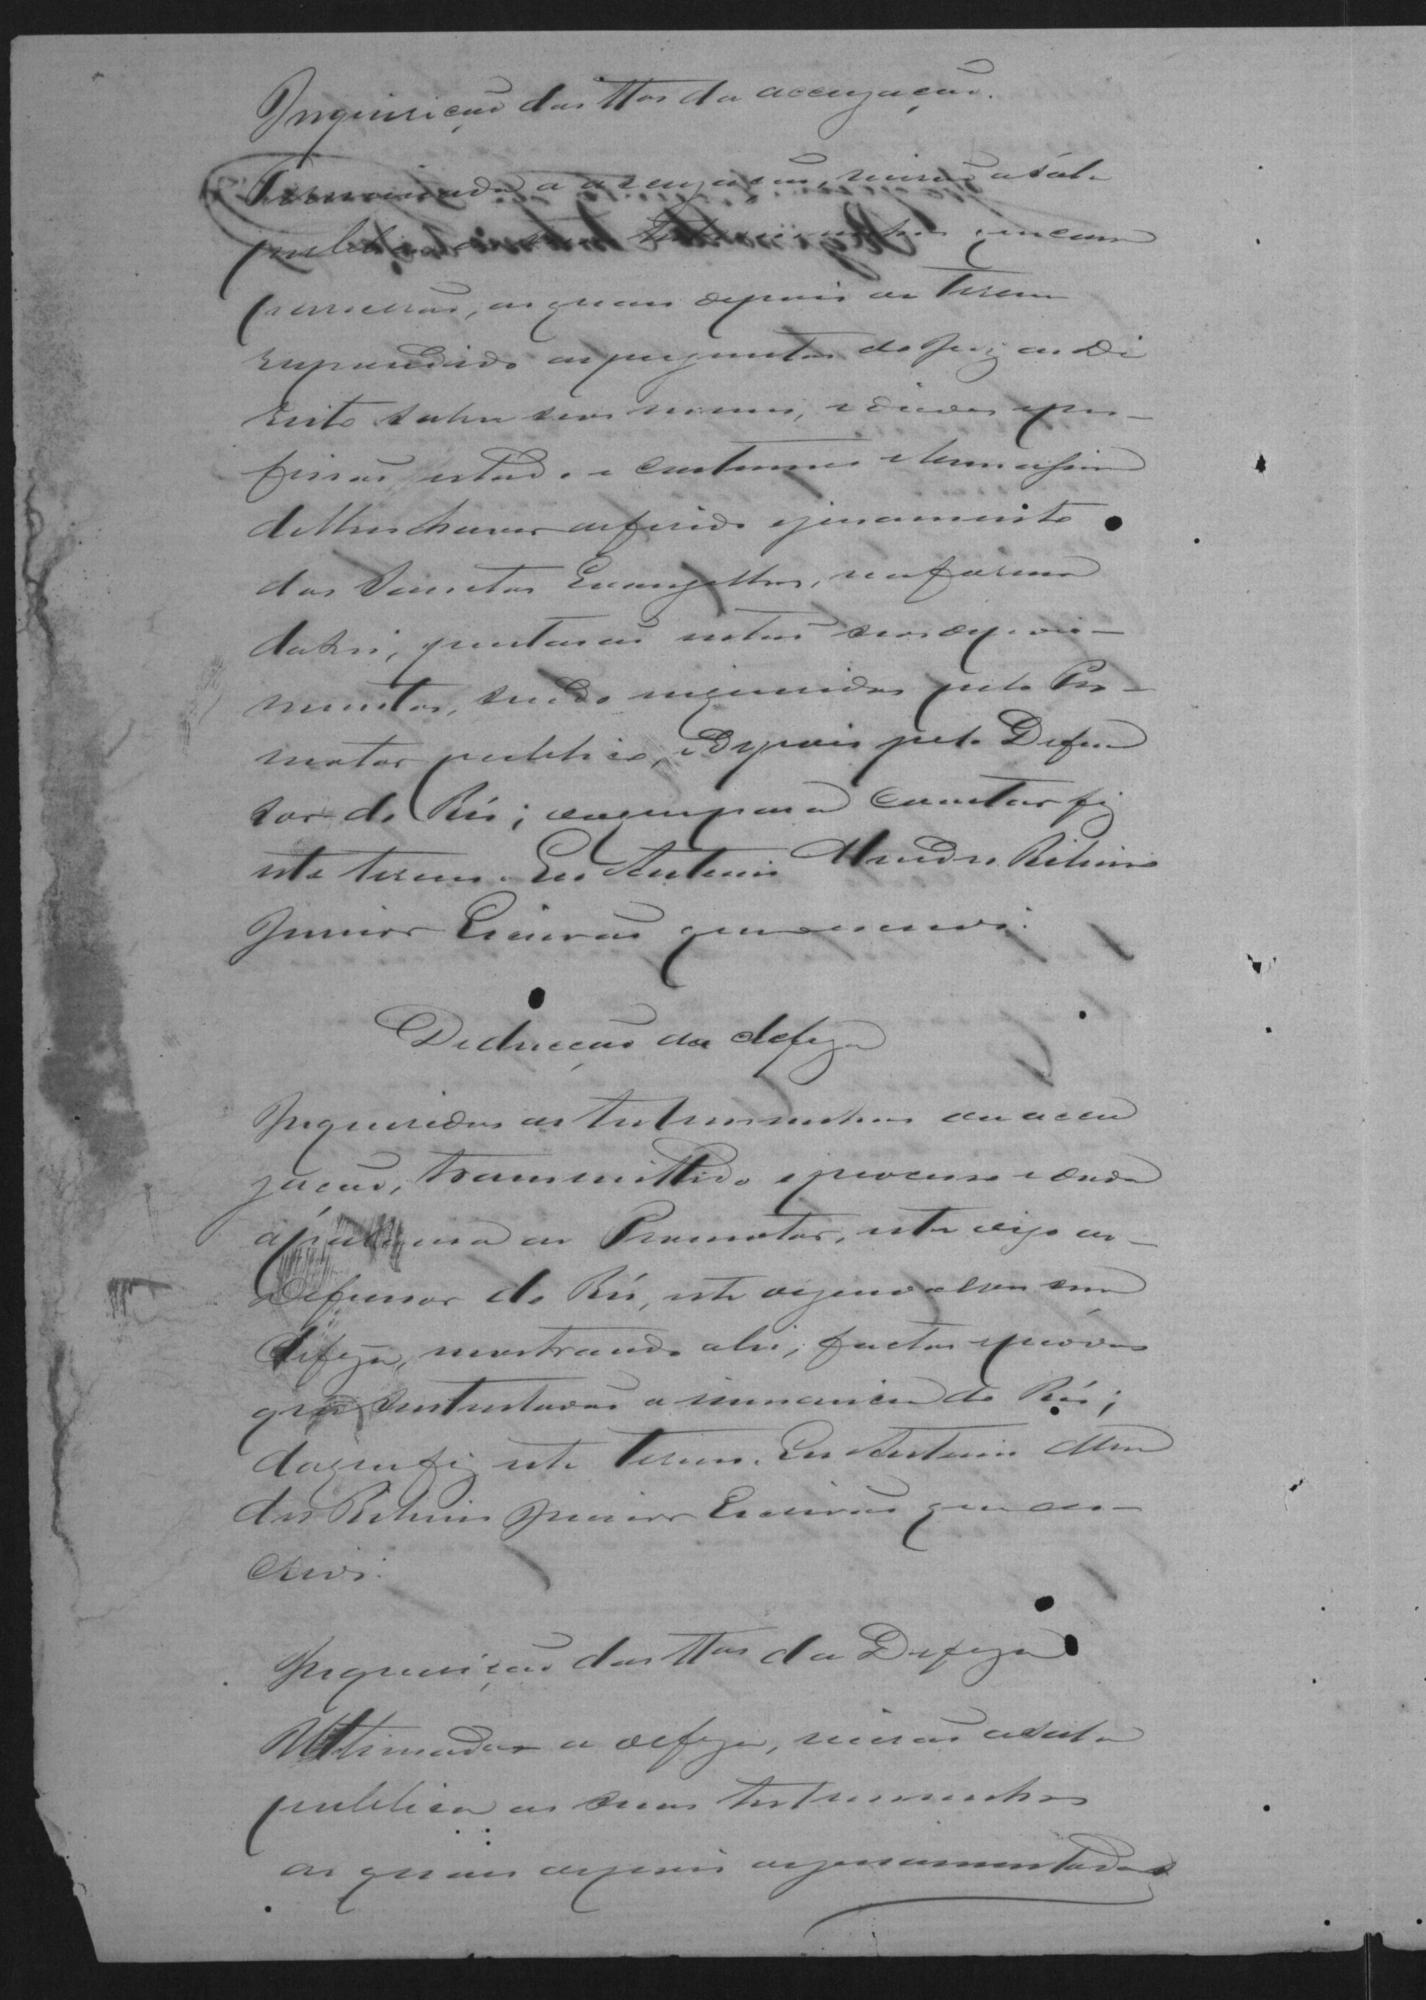 Inquirição das ttas da accuzação.
Terminada a accuzação, vierão a sala
publica as testemunhas que com
parecerão, as quaes depois de terem
respondido as perguntas do Juiz de Di
reito sobre seus nomes, idades, pro-
fissão, estado e costumes e bem assim
de lhes haver deferido o juramento
dos Santos Evangelhos, na forma
da Lei, prestarão então seos depoi-
mentos, sendo inqueridas pelo Pro-
motor publico, e depois pelo Defen
sor do Réo; do que para constar fiz
este termo. Eu Antonio Mendes Ribeiro
Junior Escrivão que o escrevi.
Deducção da defeza
Inqueridas as testemunhas da accu
zação, transmittido o processo e dada
a palavra ao Promotor, este digo ao
Defensor do Réo, este desenvolveu sua
defeza, mostrando a lei, factos e provas
que sustentavão a innocencia do Réo;
do que fiz este termo. Eu Antonio Men
des Ribeiro Junior Escrivão que es-
crevi.
Inquirição das ttas da Defeza
Ultimada a defeza, vierão a sala
publica as suas testemunhas
as quaes depois de juramentadas